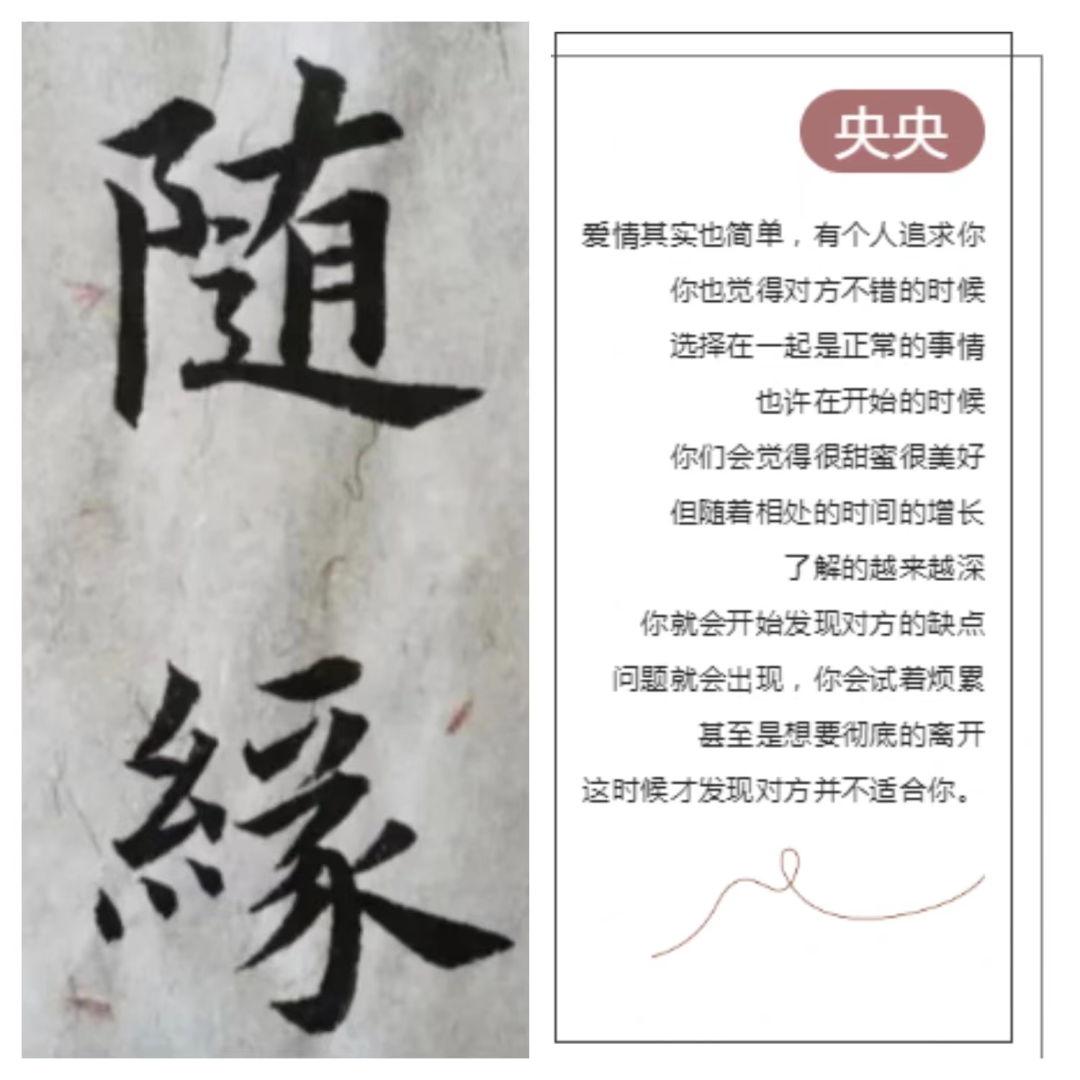 随
緣
央央
爱情其实也简单，有个人追求你
你也觉得对方不错的时候
选择在一起是正常的事情
也许在开始的时候
你们会觉得很甜蜜很美好
但随着相处的时间的增长
了解的越来越深
你就会开始发现对方的缺点
问题就会出现，你会试着烦累
甚至是想要彻底的离开
这时候才发现对方并不适合你。